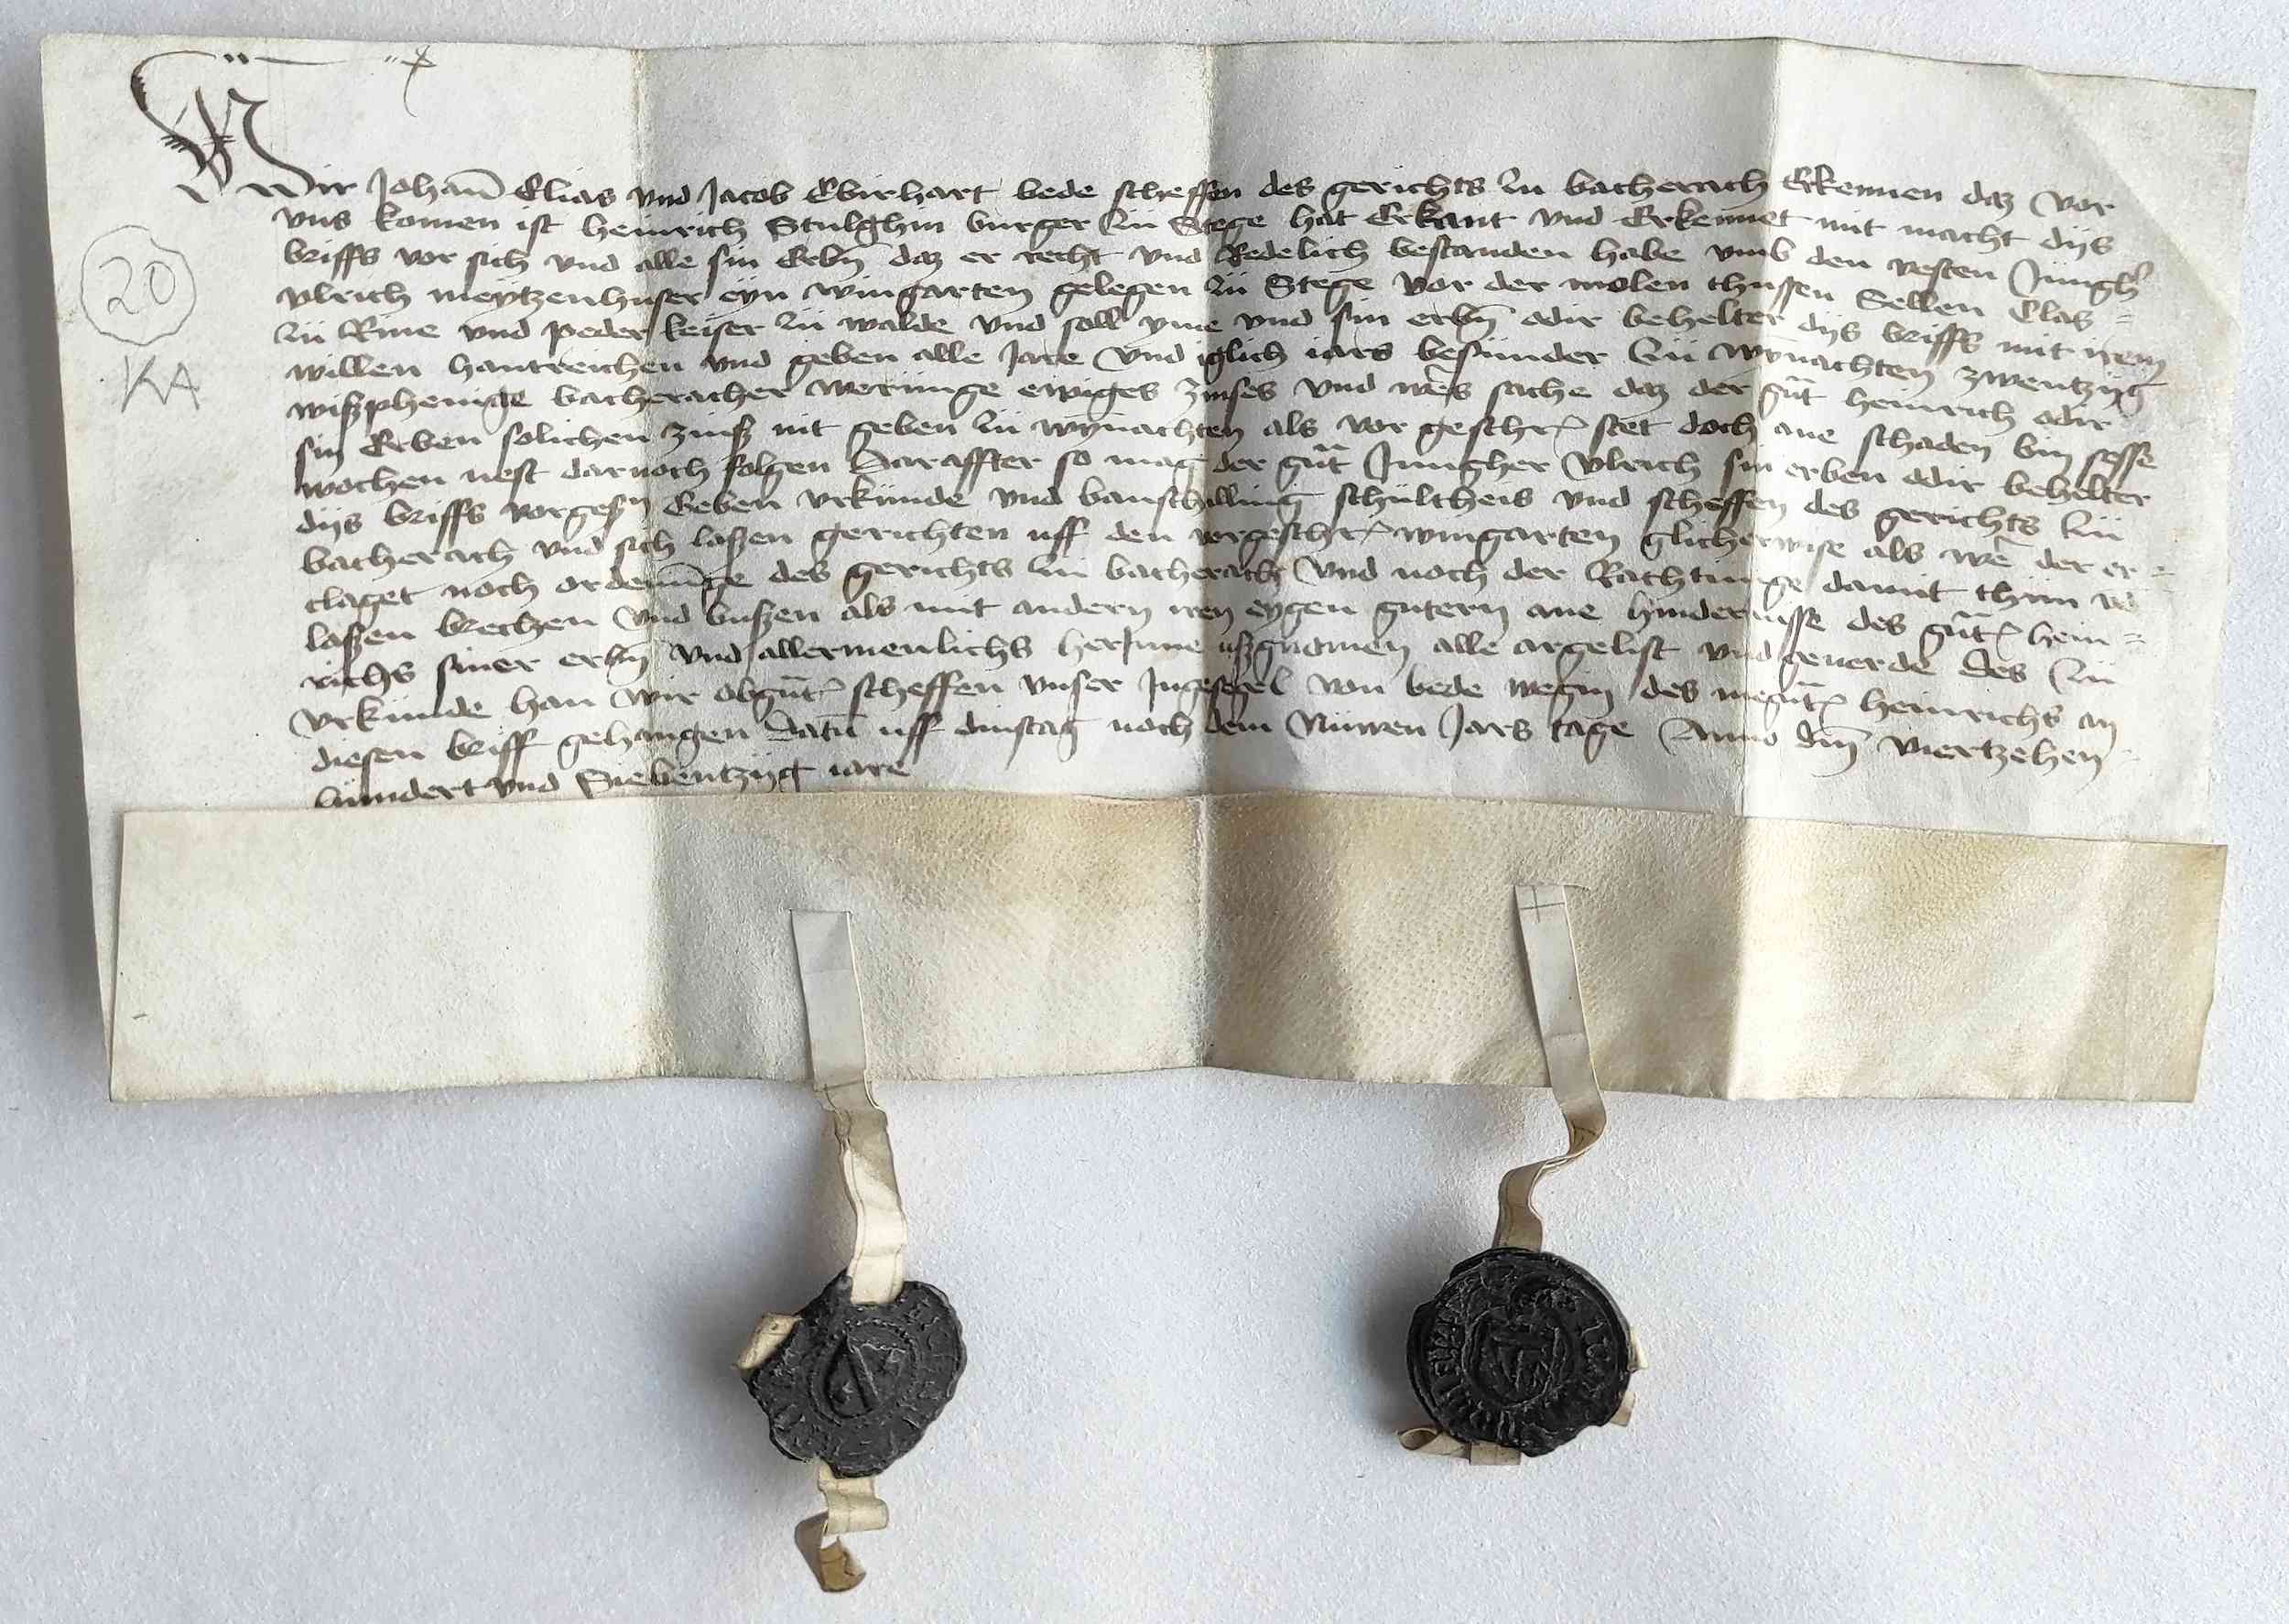 Wir Johan̄ Clias vnd Jacob Ebirhart bede scheffen des gerichts zu bacherach Erkennen daz vor
vns komen ist heinrich Stulghin burger zü Stege hat Erkant vnd Erkennet mit macht dijs
briffs vor sich vnd alle sin Erbn̄ daz er recht vnd Redelich bestanden habe vmb den vesten Jüngh̄
vlrich meytzenhuser eyn wingarten gelegen zü Stege vor der molen thussen Sellen Clas =
zü Rine vnd peder keiser zü walde vnd soll yme vnd sin erbn̄ odir behelter dijs briffs mit irem
willen hantreichen vnd geben alle Jare vnd iglich iars besünder zü wynachten zwentzijg
wißphenige bacheracher werünge ewiges zinses vnd wers sache daz der gūt heinrich odir
sin Erben solichen zinß nit geben zü wynachten als vor geschr̄ stet doch ane schaden bin sesse
wochen nest darnoch folgen Daraffter so mag der gūt Jüngher vlrich sin erben odir behelter
dijs briffs vorgesn̄ Geben vrkünde vnd banschilling schültheis vnd scheffen des gerichts zü
bacherach vnd sich laßen gerichten uff den vorgeschr̄ wingarten glicherwise als wē der er =
claget noch ordenūnge des gerichts zü bacherach vnd noch der Rachtünge damit thün vn̄
laßen brechen vnd bußen als mit andern iren eygen gutern ane hindernisse des gūt̄ hein =
richs siner erbn̄ vnd allermenlichs herJnne ußgnomen alle argelist vnd geuerde Des zü
vrkünde han wir obgūt̄ scheffen vnser Jngesegel von bede wegin des megūt̄ heinrichs an
diesen briff gehangen Datū uff dinstag noch dem Nüwen Jars tage Anno dn̄i viertzehen
hündert vnd Siebentzijg iare
20
KA